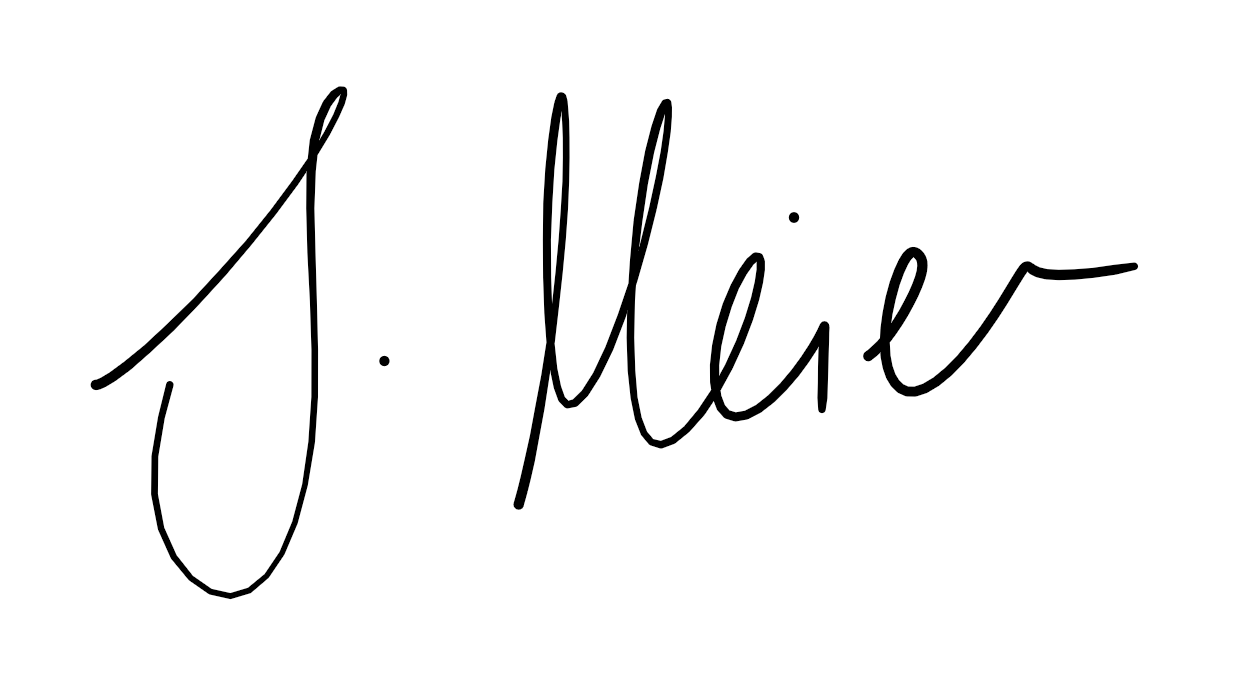 J. Meier